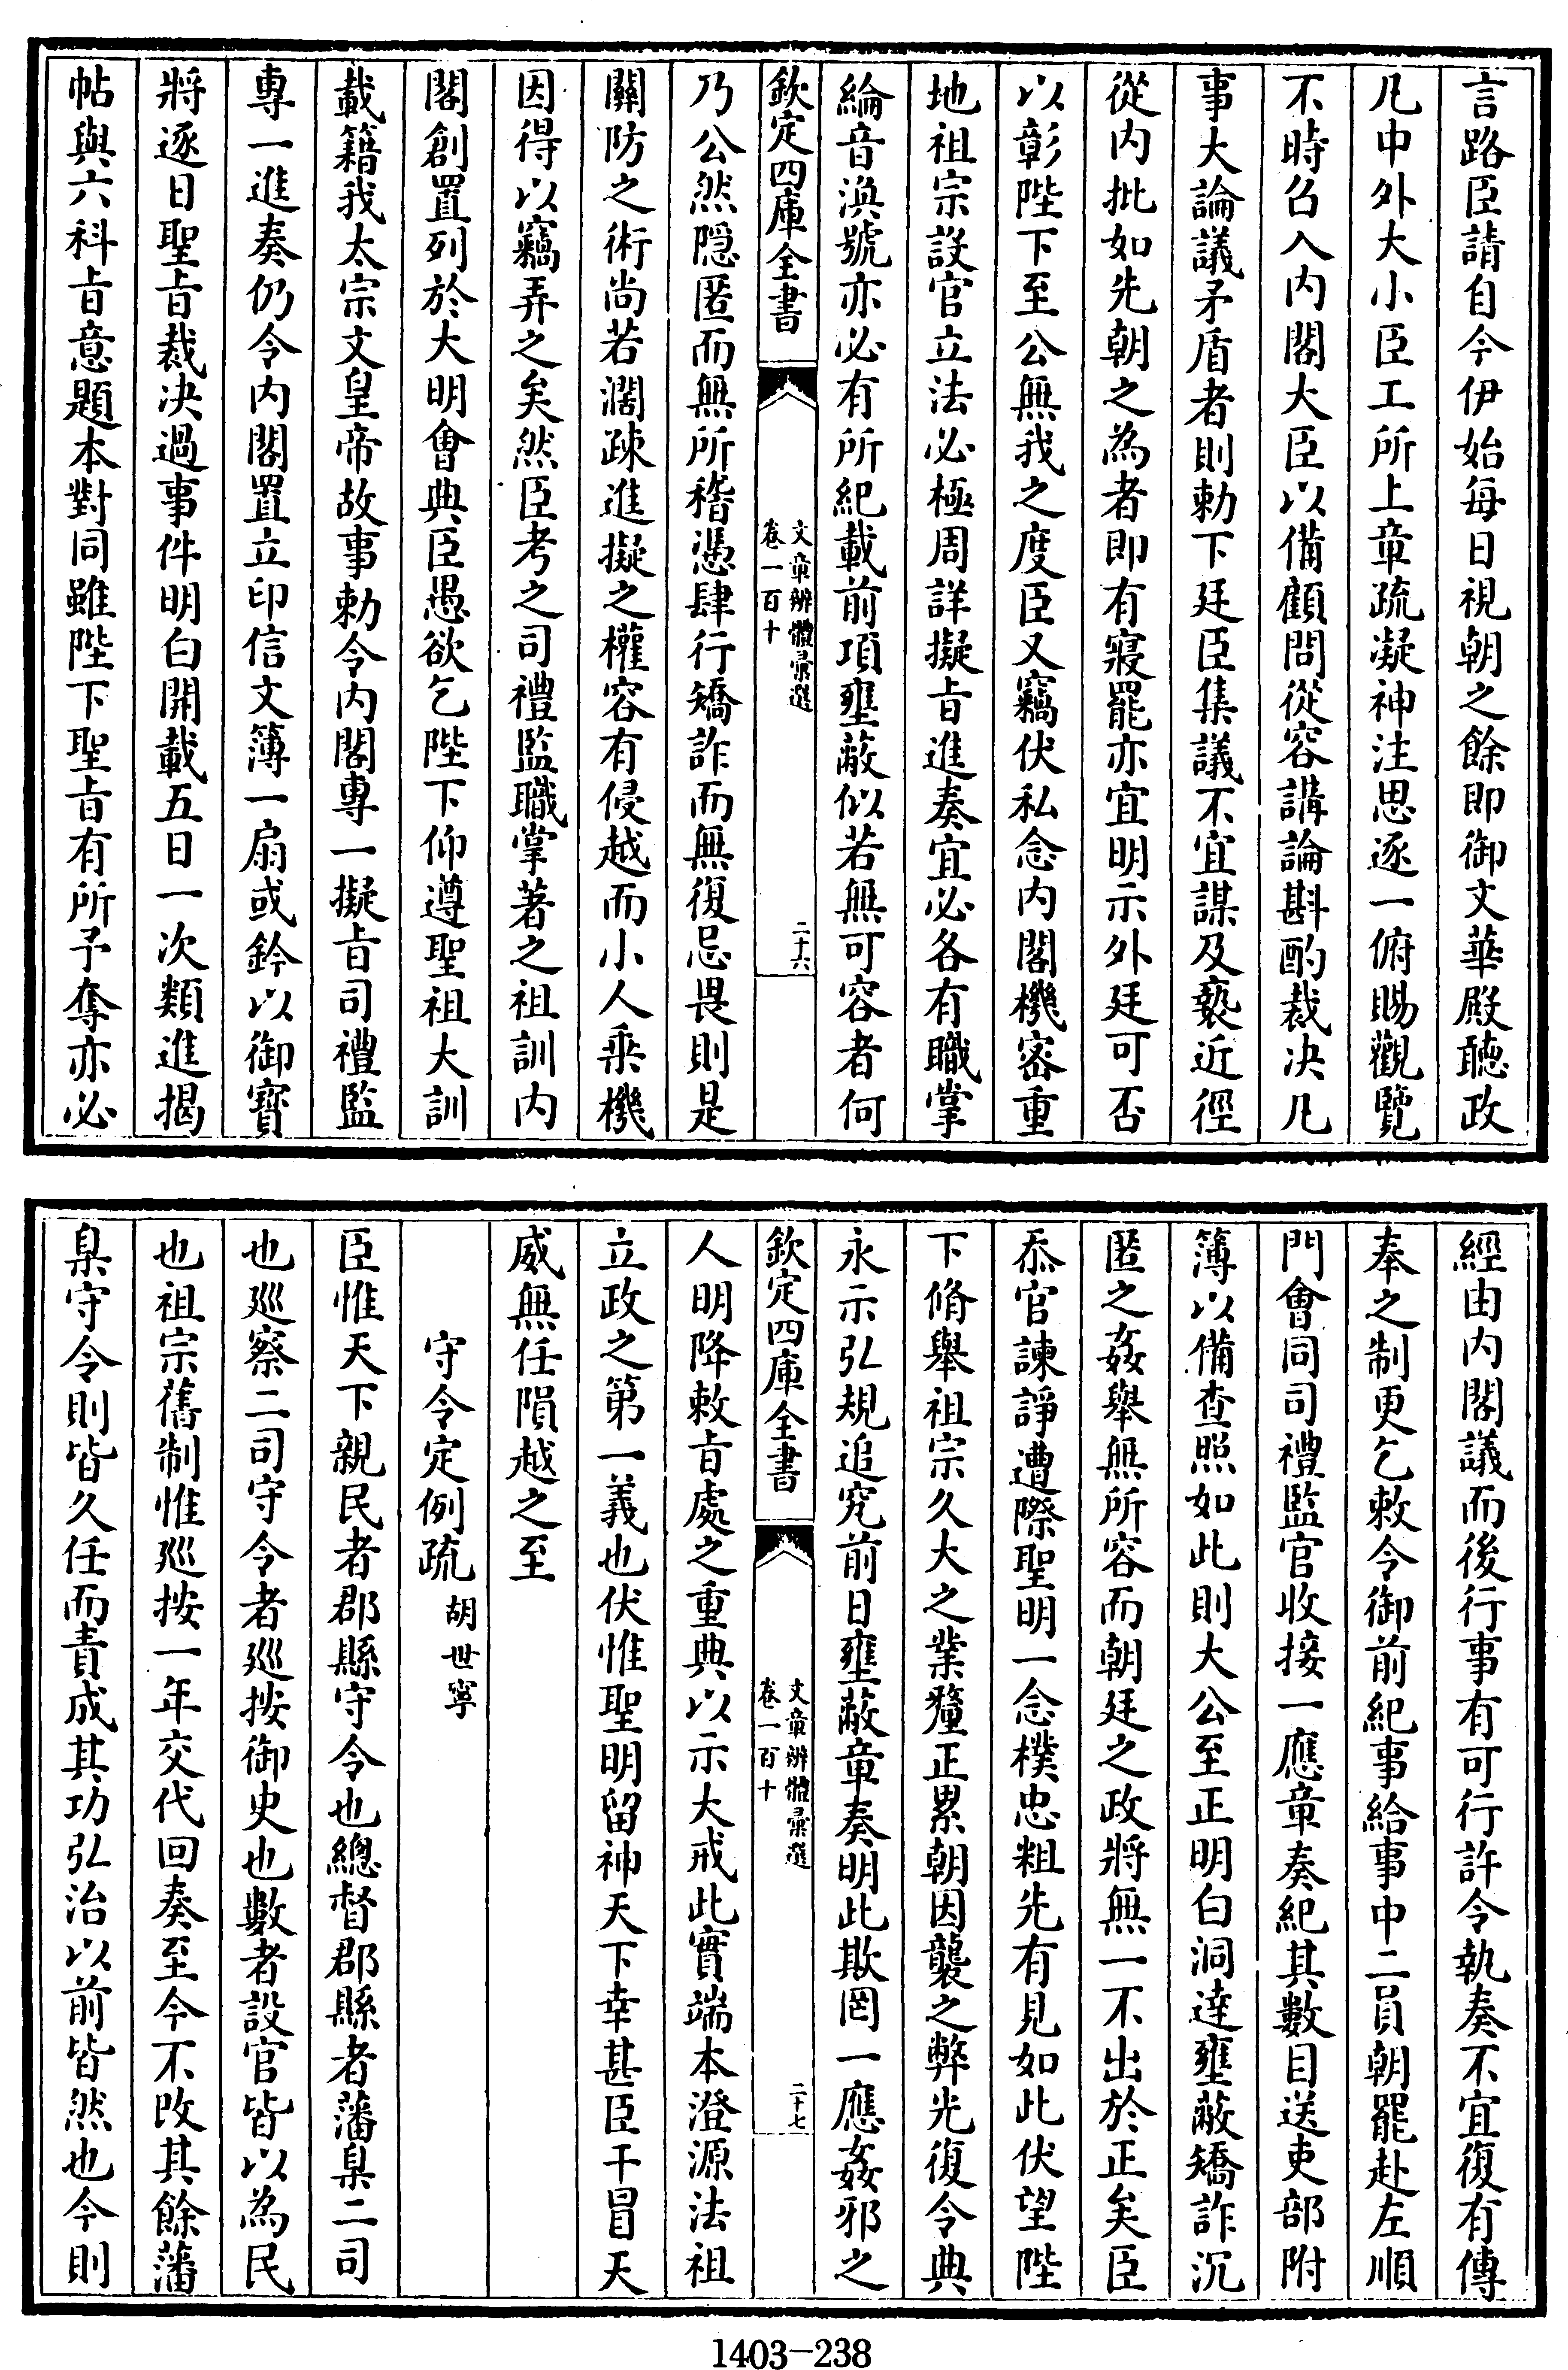 言路臣請自今伊始每日視朝之餘即御文華殿聽政
凡中外大小臣工所上章疏凝神注思逐一俯賜觀覽
不時召入内閣大臣以備顧問從容講論斟酌裁决凡
事大論議矛盾者則勅下廷臣集議不宜謀及褻近徑
從内批如先朝之為者即有寢罷亦宜明示外廷可否
以彰陛下至公無我之度臣又竊伏私念内閣機密重
地祖宗設官立法必極周詳擬旨進奏宜必各有職掌
綸音渙號亦必有所紀載前項壅蔽似若無可容者何
欽定四庫全書
文章辨體彙選
卷一百十
二十六
乃公然隠匿而無所稽憑肆行矯詐而無復忌畏則是
關防之術尚若濶疎進擬之權容有侵越而小人乘機
因得以竊弄之矣然臣考之司禮監職掌著之祖訓内
閣創置列於大明會典臣愚欲乞陛下仰遵聖祖大訓
載籍我太宗文皇帝故事勅令内閣專一擬旨司禮監
專一進奏仍令内閣置立印信文簿一扇或鈐以御寳
將逐日聖旨裁决過事件明白開載五日一次類進揭
帖與六科旨意題本對同雖陛下聖旨有所予奪亦必
經由内閣議而後行事有可行許令執奏不宜復有傳
奉之制更乞敕令御前紀事給事中二員朝罷赴左順
門會同司禮監官收接一應章奏紀其數目送吏部附
簿以備查照如此則大公至正明白洞達壅蔽矯詐沉
匿之姦舉無所容而朝廷之政將無一不出於正矣臣
忝官諫諍遭際聖明一念樸忠粗先有見如此伏望陛
下脩舉祖宗久大之業釐正累朝因襲之弊光復令典
永示弘規追究前日壅蔽章奏明此欺罔一應姦邪之
欽定四庫全書
文章辨體彙選
卷一百十
二十七
人明降敕旨處之重典以示大戒此實端本澄源法祖
立政之第一義也伏惟聖明留神天下幸甚臣干冒天
威無任隕越之至
守令定例疏 胡世寧
臣惟天下親民者郡縣守令也總督郡縣者藩臬二司
也廵察二司守令者廵按御史也數者設官皆以為民
也祖宗舊制惟廵按一年交代回奏至今不改其餘藩
臬守令則皆久任而責成其功弘治以前皆然也今則
1403-238